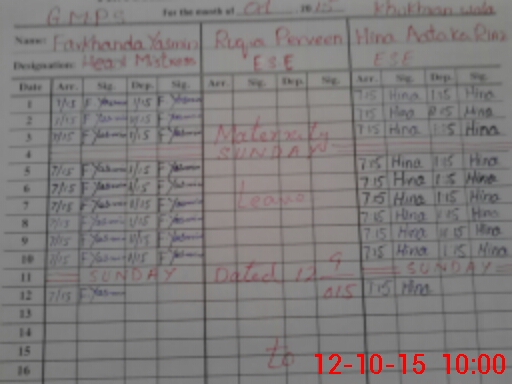 G.M.P.S For the month of 01 2015 Khukhaan wala
Name: Farkhanda Yasmin Ruqia Perveen Hina
Designation: Head Mistress E S E E S E
Date Arr. Sig. Dep. Sig. Arr. Sig. Dep. Sig. Arr. Sig. Dep. Sig.
1 7/15 F Yasmin 1/15 F Yasmin 7 15 Hina 1 15 Hina
2 7/15 F Yasmin 1/15 F Yasmin 7 15 Hina Hina
3 7/15 F Yasmin 1/15 F Yasmin Maternity 7 15 Hina 1 15 Hina
4 SUNDAY
5 7/15 F Yasmin 1/15 F Yasmin 7 15 Hina 1 15 Hina
6 7/15 F Yasmin 1/15 F Yasmin 7 15 Hina 1 15 Hina
7 7/15 F Yasmin 1/15 F Yasmin Leave 7 15 Hina 1 15 Hina
8 7/15 F Yasmin 1/15 F Yasmin 7 15 Hina 1 15 Hina
9 7/15 F Yasmin 1/15 F Yasmin 7 15 Hina 1 15 Hina
10 7/15 F Yasmin 1/15 F Yasmin 7 15 Hina 1 15 Hina
11 SUNDAY Dated 12 9 SUNDAY
12 7/15 F Yasmin 015 7 15 Hina
13
14
15 to
16
12-10-15 10:00